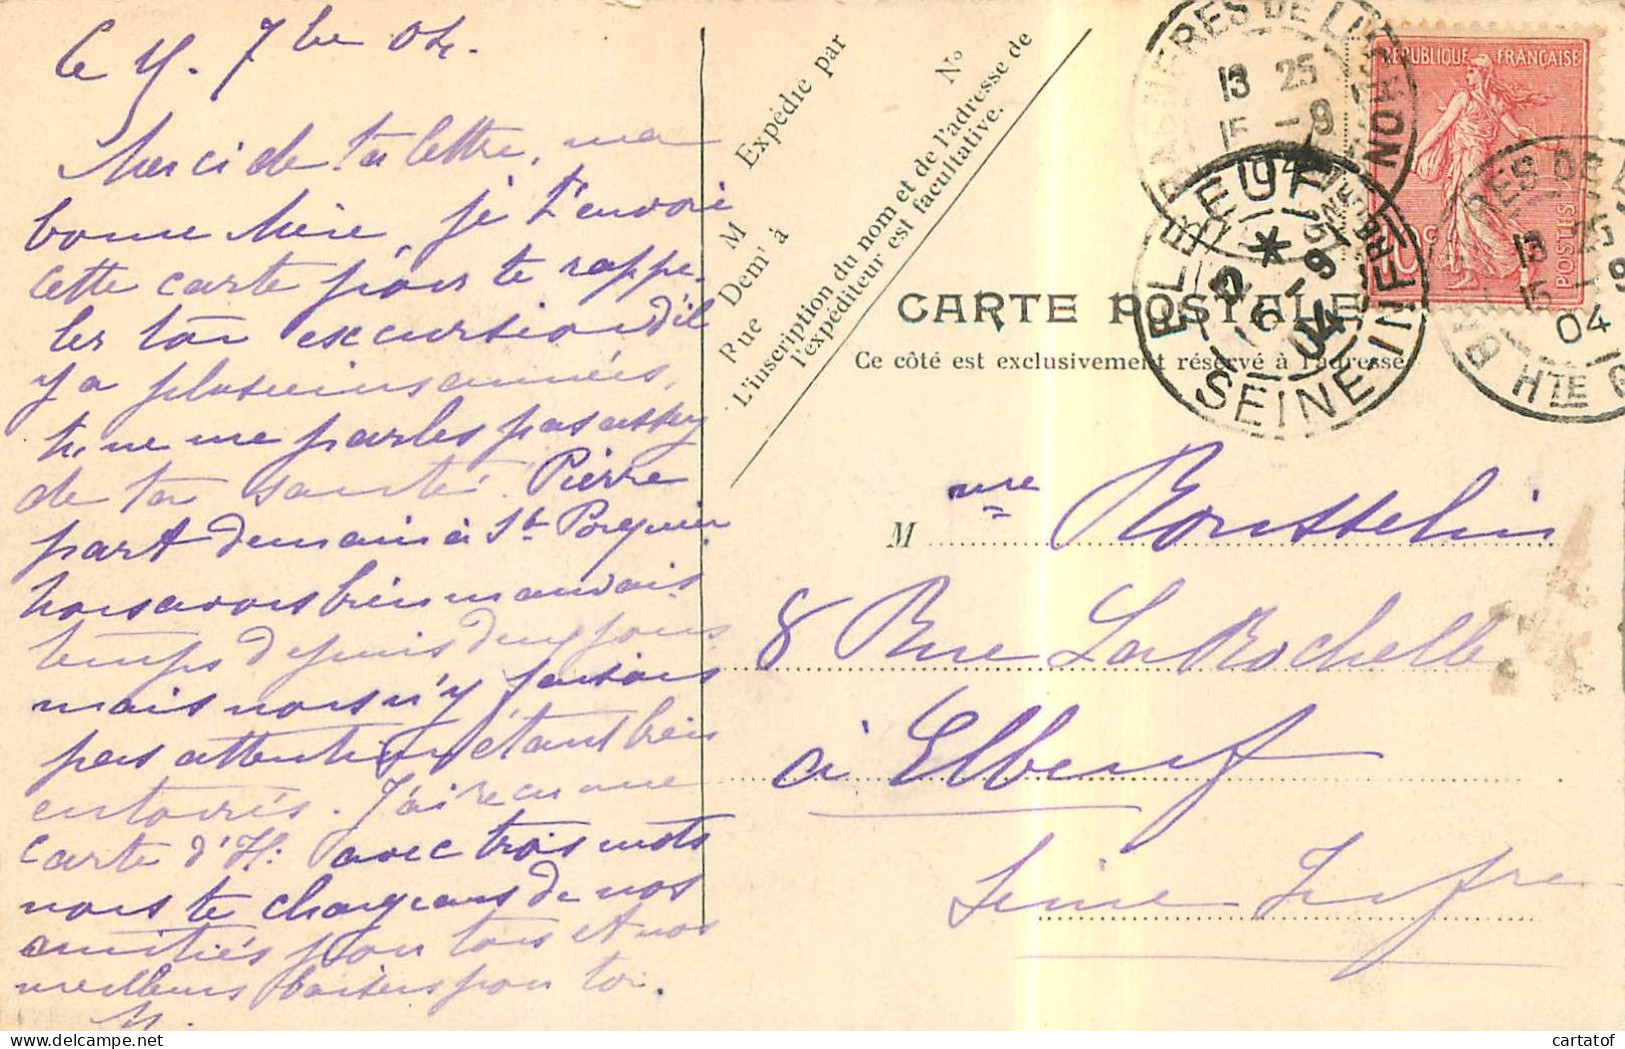 7bre 04.
Merci de ta lettre, ma
bonne Mère, je t'envoie
cette carte pour te rappe-
ler ton excursion d'il
y a plusieurs années,
tu ne me parles pas assez
de ta santé. Pierre
part demain à St
nous avons bien mauvais
temps depuis deux jours
mais nous n'y faisons
pas attention étant bien
entourés. J'ai reçu une
carte d'H. avec trois mots
nous te chargeons de nos
amitiés pour tous et nos
meilleurs baisers pour toi.
M.
Expédié par
M
Rue
Dem^t à
N°
L'inscription du nom et de l'adresse de
l'expéditeur est facultative.
RÉPUBLIQUE FRANÇAISE
POSTES
13 25
15 -9
04
ELBEUF
16 -9
04
SEINE INFERE
13 25
15 -9
04
HTE G
CARTE POSTALE
Ce côté est exclusivement réservé à l'adresse
Mme Rousselin
8 Rue La Rochelle
à Elbeuf
Seine Infre
cartatof